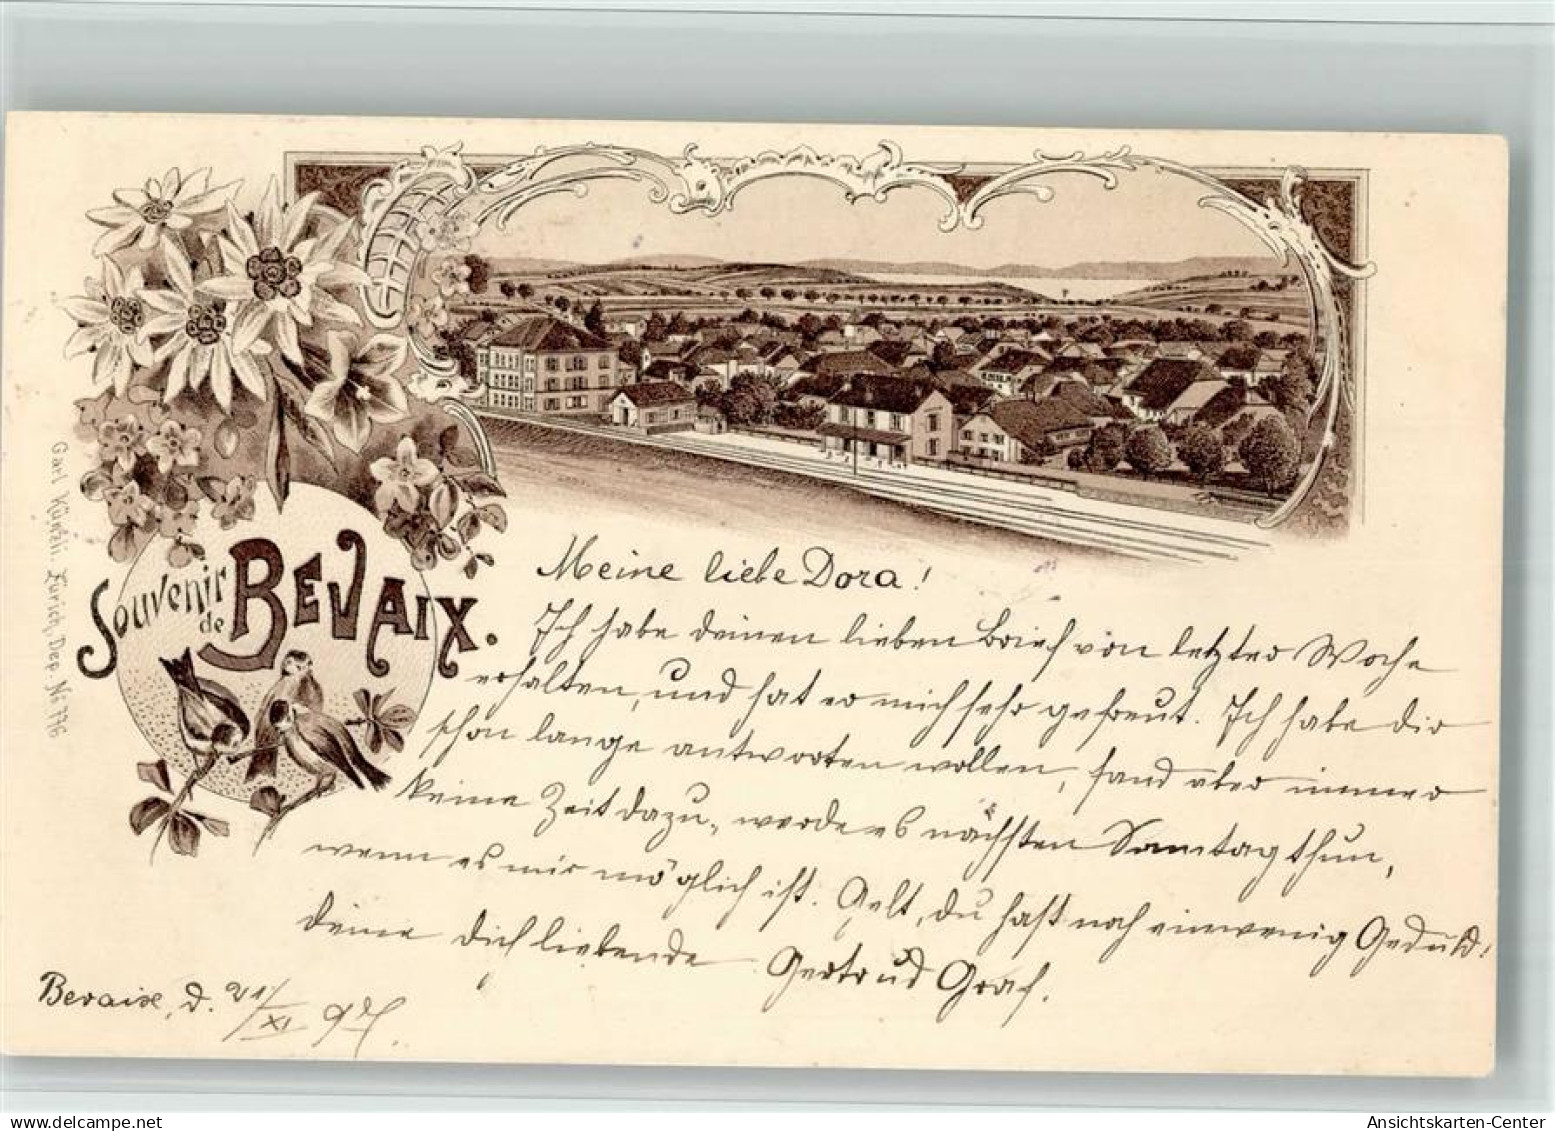 Souvenir
de
BEVAIX.
Carl Künzli, Zürich, Dep. No 776
Meine liebe Dora!
Ich habe deinen lieben Brief von letzter Woche
erhalten, und hat er mich sehr gefreut. Ich habe dir
schon lange antworten wollen, fand aber immer
keine Zeit dazu, werde es nächsten Samtag thun,
wenn es mir möglich ist. Gelt, du hast noch ein wenig Geduld!
deine dich liebende Gertrud Graf.
Bevaix, d. 21/XI 97.
www.delcampe.net
Ansichtskarten-Center